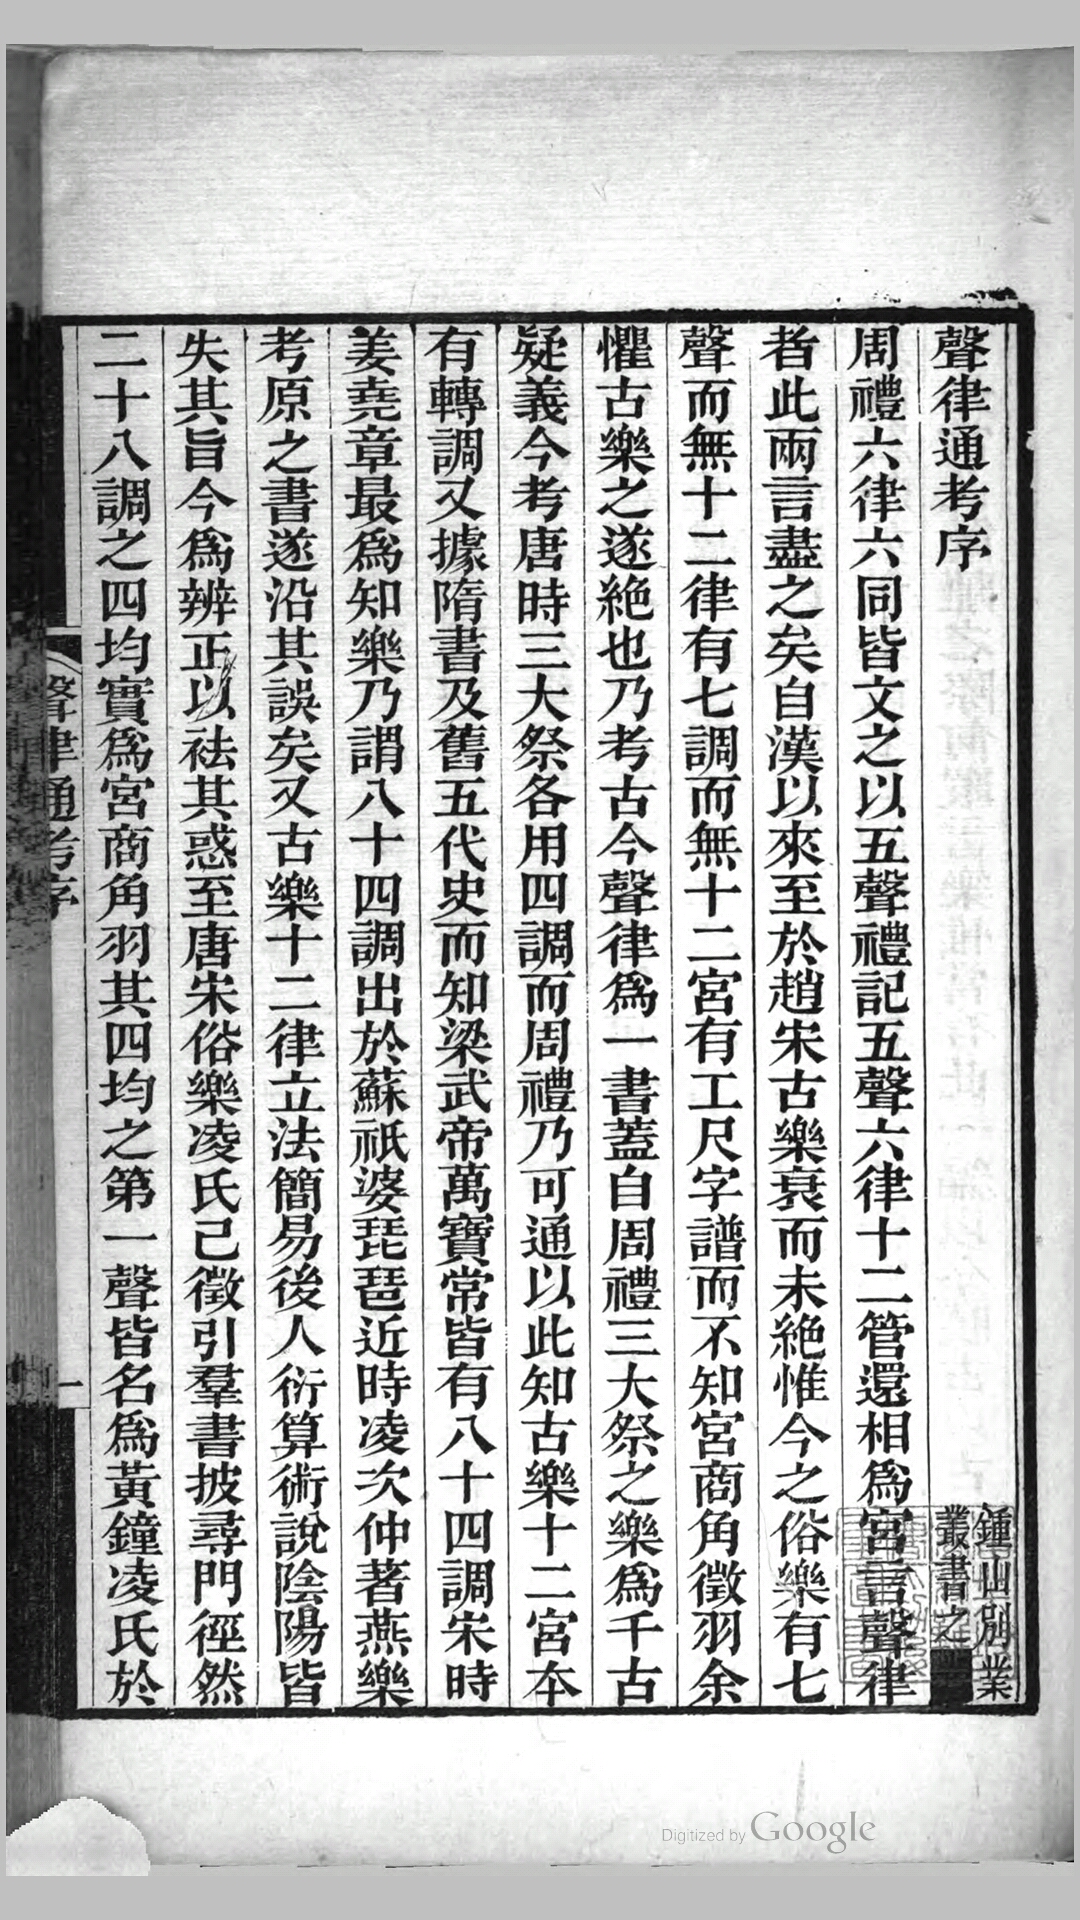 聲律通考序
鍾山別業
叢書之
周禮六律六同皆文之以五聲禮記五聲六律十二管還相爲宮言聲律
者此兩言盡之矣自漢以來至於趙宋古樂衰而未絶惟今之俗樂有七
聲而無十二律有七調而無十二宮有工尺字譜而不知宮商角徵羽余
懼古樂之遂絶也乃考古今聲律爲一書蓋自周禮三大祭之樂爲千古
疑義今考唐時三大祭各用四調而周禮乃可通以此知古樂十二宮本
有轉調又據隋書及舊五代史而知梁武帝萬寶常皆有八十四調宋時
姜堯章最爲知樂乃謂八十四調出於蘇祇婆琵琶近時凌次仲著燕樂
考原之書遂沿其誤矣又古樂十二律立法簡易後人衍算術說陰陽皆
失其旨今爲辨正以袪其惑至唐宋俗樂凌氏已徵引羣書披尋門徑然
二十八調之四均實爲宮商角羽其四均之第一聲皆名爲黃鐘凌氏於
聲律通考序
一
Digitized by Google